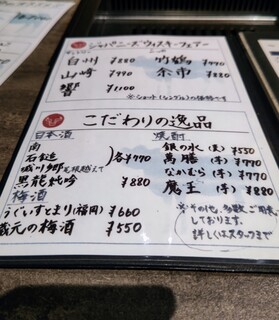 ジャパニーズウィスキーフェアー
白州 ¥880 竹鶴 ¥990
山崎 ¥990 余市 ¥880
響 ¥1100
※ショット(シングル)の価格です
こだわりの逸品
日本酒 焼酎
南
各¥990
黒龍純吟 ¥880
銀の水(麦) ¥550
萬膳(芋) ¥770
なかむら(芋) ¥770
魔王(芋) ¥880
梅酒
うぐいすとまり(福岡) ¥660
蔵元の梅酒 ¥550
※その他、多数ご用意
しております。
詳しくはスタッフまで